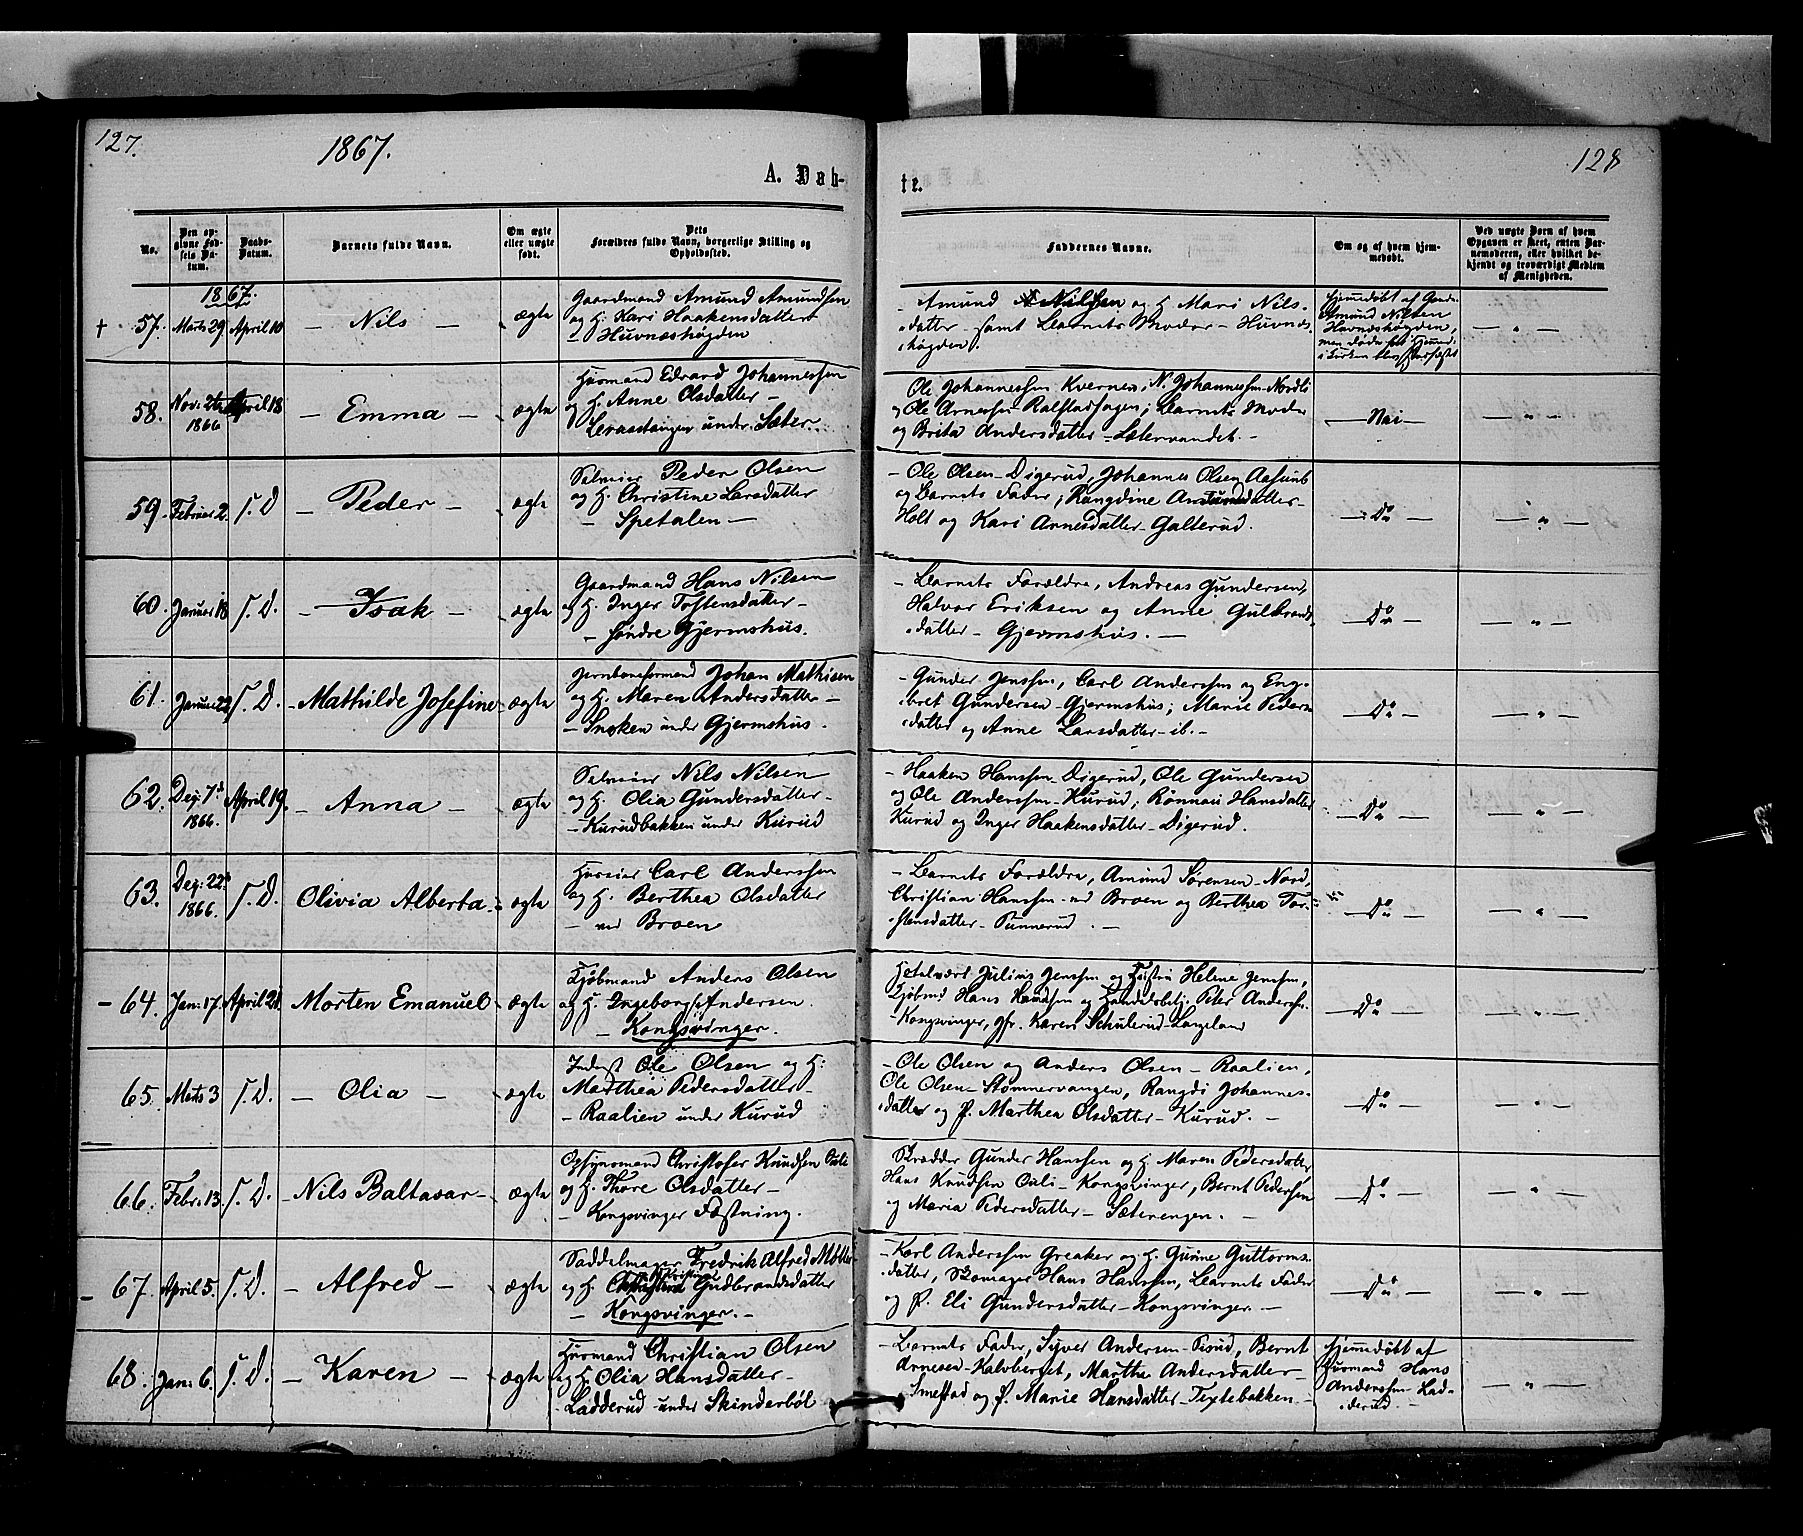 127.
1867.
128
A. Døb-
te.
No.
Den op-
givne Fød-
sels Da-
tum.
Daabs-
Datum.
Barnets fulde Navn.
Om ægte
eller uægte
født.
Dets
Forældres fulde Navn, borgerlige Stilling og
Opholdssted.
Faddernes Navne.
Om og af hvem hjem-
medøbt.
Ved uægte Børn af hvem
Opgaven er skeet, enten Bar-
nemoderen, eller hvilket be-
kjendt og troværdigt Medlem
af Menigheden.
1867.
+ 57. Marts 29 April 10 - Nils - ægte
Gaardmand Amund Amundsen
og H. Kari Haakensdatter
- Huvnæshøgden
- Amund Nilsen og H. Mari Nils-
datter samt Barnets Moder - Huvnæs-
høgden.
Hjemmedøbt af
Amund Nilsen
Huvnæshøgden,
- " -
58. Nov: 26 1866 April 18 - Emma - ægte
Husmand Edvard Johannessen
og H. Anne Olsdatter -
under Sæter
Ole Johannessen Kvernen, N. Johannessen Nordli
Ole Arnesen Ralfstadhagen; Barnets Moder
og Brita Andersdatter - Sætervandet. -
- Nei -
- " -
59. Februar 2. S. D - Peder - ægte
Selveier Peder Olsen
og H. Christine Larsdatter
- Spetalen -
- Ole Olsen - Digerud, Johannes Olsen Aasum
og Barnets Fader; Rangdine Amundsdatter -
Holt og Kari Arnesdatter - Galterud.
- Do -
- " -
60. Januar 18 S. D. - Isak - ægte
Gaardmand Hans Nilsen
og H. Inger Toftensdatter -
- søndre Gjermshus.
- Barnets Forældre, Andreas Gundersen,
Halvor Eriksen og Anne Gulbrands-
datter - Gjermshus. -
- Do -
- " -
61. Januar 22 S. D. - Mathilde Josefine - ægte
Jernbaneformand Johan Mathisen
og H. Maren Andersdatter -
- Snøken under Gjermshus.
- Gunder Jenssen, Carl Anderssen og Eng-
bret Gundersen - Gjermshus; Marie Peders-
datter og Anne Larsdatter - ib. -
- Do -
- " -
62. Dez: 7de 1866 April 19. - Anna - ægte
Selveier Nils Nilsen
og H. Olia Gundersdatter -
- Kurudbakken under Kurud
- Haaken Hanssen - Digerud, Ole Gundersen
og Ole Anderssen - Kurud; Rønnau Hansdatter
Kurud og Inger Haakensdatter - Digerud.
- Do -
- " -
63. Dez: 22de 1866. S. D. Olivia Alberta - ægte
Huseier Carl Anderssen
og H. Berthea Olsdatter
- ved Broen
- Barnets Forældre, Amund Sørensen - Nord,
Christian Hanssen - ved Broen og Berthea Tor-
stensdatter - Punnerud. -
- Do -
- " -
- 64. Jan: 17. April 21. Morten Emanuel - ægte
Kjøbmand Anders Olsen
og H. Ingeborg Andersen.
- Kongsvinger.
Hotelvært Julius Jenssen og Hustru Helene Jenssen,
Kjøbmd Hans Hanssen og Handelsbetj. Peter Anderssen -
- Kongsvinger, Jfr. Karen Schulerud - Langeland
- Do -
- " -
65. Marts 3 S. D. - Olia - ægte
Inderst Ole Olsen og H:
Marthea Pedersdatter
- Raalien under Kurud
- Ole Olsen og Anders Olsen - Raalien,
Ole Olsen - Stømnervangen, Rangdi Johannes-
datter og P. Marthea Olsdatter - Kurud. -
- Do -
- " -
66. Febr: 13. S. D. - Nils Baltasar - ægte
Opsynsmand Christofer Knudsen Culi
og H. Thore Olsdatter -
- Kongsvinger Fæstning.
Skrædder Gunder Hanssen og H Maren Pedersdatter,
Hans Knudsen Culi - Kongsvinger, Bernt Pedersen
og Maria Pedersdatter - Sæterengen. -
- Do -
- " -
- 67. April 5. S. D. - Alfred - ægte
Saddelmager Fredrik Alfred Møller
og H. Christine Gudbrandsdatter
- Kongsvinger. -
- Karl Anderssen Greaker og H. Gunine Guttorms-
datter, Skomager Hans Hanssen, Barnets Fader
og P. Eli Gundersdatter - Kongsvinger -
- Do -
- " -
68. Jan: 6. S. D. - Karen - ægte
Husmand Christian Olsen
og H. Olia Hansdatter -
- Ladderud under Skinderbøl
- Barnets Fader, Syver Andersen - Berit
Arnesen - Kalvberget, Marthe Andersdatter -
Smestad og P. Marie Hansdatter - Teptebakken. -
Hjemmedøbt af
Husmand Hans
Anderssen - Lad-
derud -
- " -